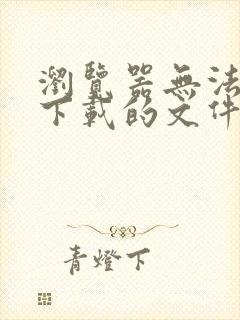 瀏覽器無法
下載的文件
青燈下